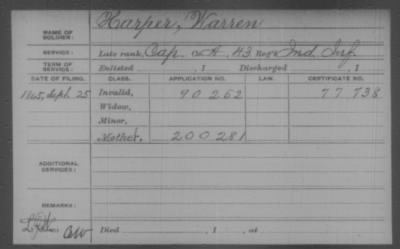 NAME OF SOLDIER: Harper, Warren
SERVICE: Late rank, Cap. Co. A. 43 Reg't Ind. Inf.
TERM OF SERVICE: Enlisted , 1 Discharged , 1
DATE OF FILING. CLASS. APPLICATION NO. LAW. CERTIFICATE NO.
1865, Sept. 25 Invalid, 90262 77738
Widow,
Minor,
Mother, 200281
ADDITIONAL SERVICES:
REMARKS:
Died , 1 , at